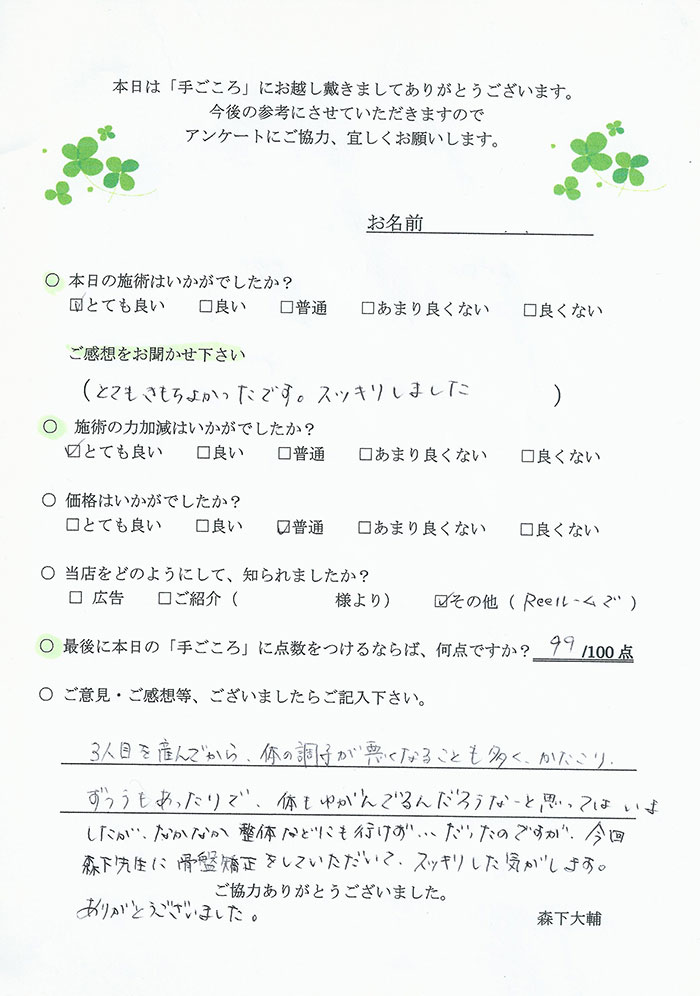 本日は「手ごころ」にお越し戴きましてありがとうございます。
今後の参考にさせていただきますので
アンケートにご協力、宜しくお願いします。
お名前
○ 本日の施術はいかがでしたか？
☑とても良い □良い □普通 □あまり良くない □良くない
ご感想をお聞かせ下さい
(とてもきもちよかったです。スッキリしました )
○ 施術の力加減はいかがでしたか？
☑とても良い □良い □普通 □あまり良くない □良くない
○ 価格はいかがでしたか？
□とても良い □良い ☑普通 □あまり良くない □良くない
○ 当店をどのようにして、知られましたか？
□ 広告 □ご紹介（ 様より） ☑その他（ Reeルームで ）
○ 最後に本日の「手ごころ」に点数をつけるならば、何点ですか？ 99 /100点
○ ご意見・ご感想等、ございましたらご記入下さい。
3人目を産んでから、体の調子が悪くなることも多く、かたこり、
ずつうもあったりで、体もゆがんでるんだろうなーと思ってはいま
したが、なかなか整体などにも行けず…だったのですが、今回
森下先生に骨盤矯正をしていただいて、スッキリした気がします。
ご協力ありがとうございました。
ありがとうございました。
森下大輔